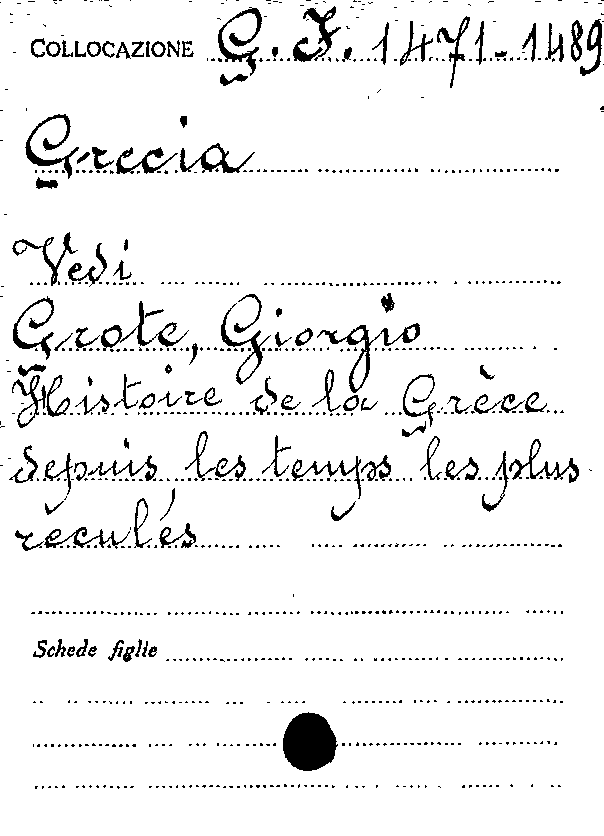 COLLOCAZIONE G. J. 1471-1489
Grecia
Vedi
Grote, Giorgio
Histoire de la Grèce
depuis les temps les plus
reculés
Schede figlie